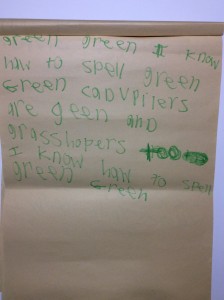 green green I know
how to spell green
Green cadvpilers
are geen and
grasshopers too
I know how to spell
green Green